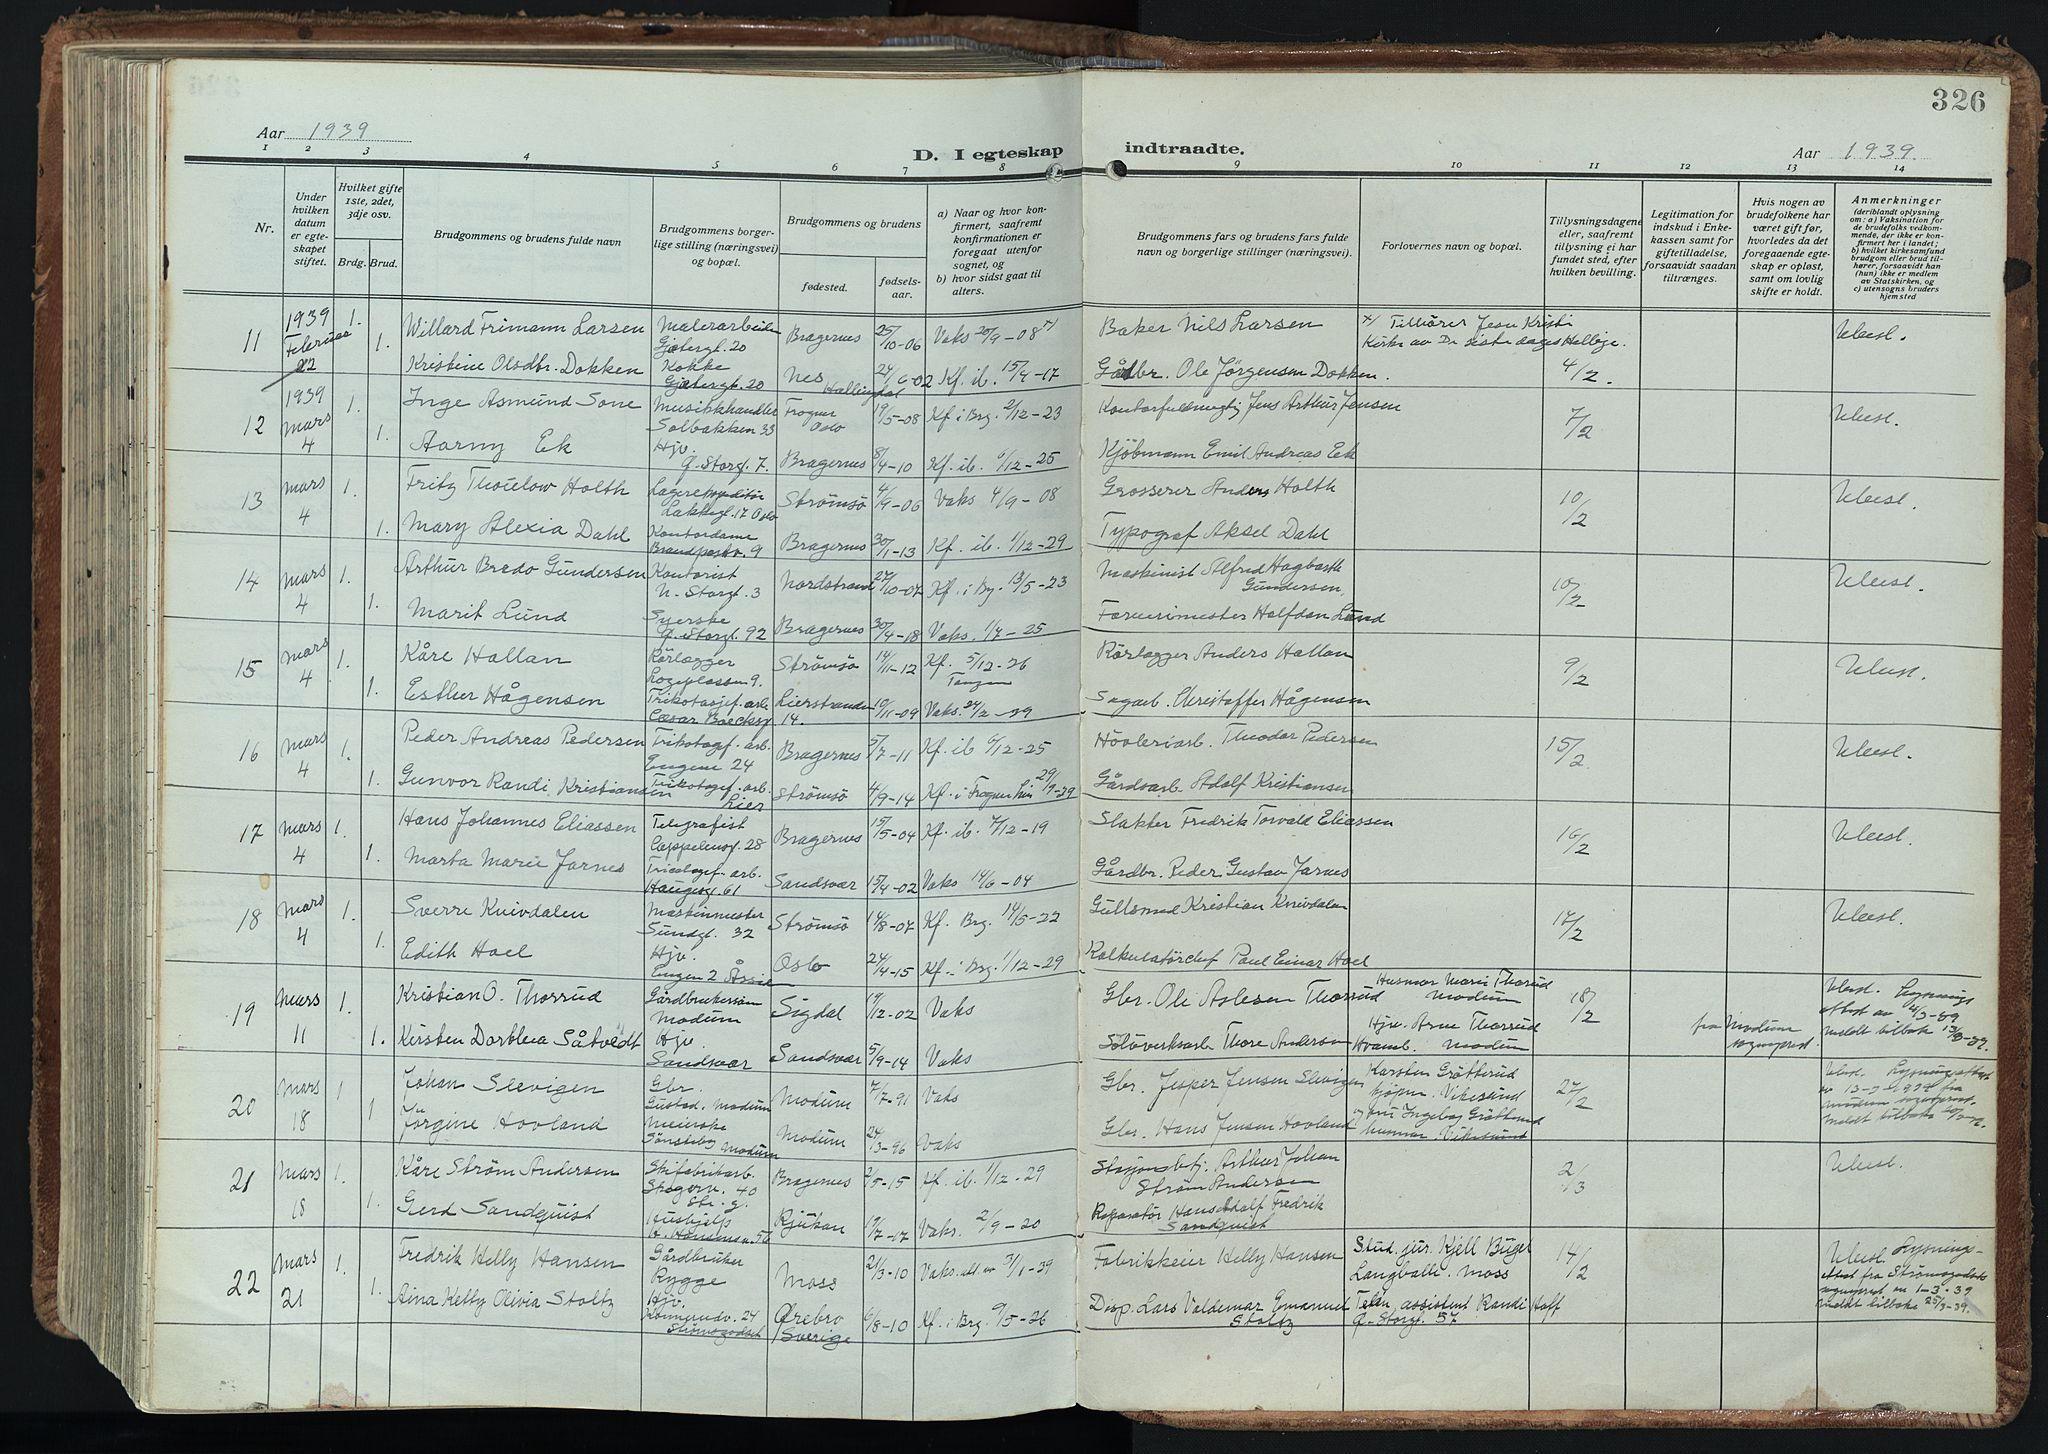 326
Aar 1939
D. I egteskap indtraadte.
Aar 1939.
1 2 3 4 5 6 7 8 9 10 11 12 13 14
Nr.
Under hvilken datum er egteskapet stiftet.
Hvilket gifte 1ste, 2det, 3dje osv.
Brdg. Brud.
Brudgommens og brudens fulde navn
Brudgommens borgerlige stilling (næringsvei) og bopæl.
Brudgommens og brudens
fødested.
fødselsaar.
a) Naar og hvor konfirmert, saafremt konfirmationen er foregaat utenfor sognet, og
b) hvor sidst gaat til alters.
Brudgommens fars og brudens fars fulde navn og borgerlige stillinger (næringsvei).
Forlovernes navn og bopæl.
Tillysningsdagene eller, saafremt tillysning ei har fundet sted, efter hvilken bevilling.
Legitimation for indskud i Enkekassen samt for giftetilladelse, forsaavidt saadan tiltrænges.
Hvis nogen av brudefolkene har været gift før, hvorledes da det foregaaende egteskap er opløst, samt om lovlig skifte er holdt.
Anmerkninger
(deriblandt oplysning om: a) Vaksination for de brudefolks vedkommende, der ikke er konfirmert her i landet; b) hvilket kirkesamfund brudgom eller brud tilhører, forsaavidt han (hun) ikke er medlem av Statskirken, og c) utensogns bruders hjemsted
11 1939 Februar 22 1. Willard Frimann Larsen Malerarbeider Gjetergt. 20 Bragernes 25/10-06 Vaks 20/9-08 x) Baker Nils Larsen x) Tilhører Jesu Kristi Kirke av De siste dages Hellige. Ulest.
1. Kristine Olsdtr. Dokken Kokke Gjetergt. 20 Nes Hallingdal 24/6-02 Kf. ib. 15/4-17 Gårdbr. Ole Jørgensen Dokken. 4/2.
12 1939 Mars 4 1. Inge Asmund Sone Musikkhandler Solbakken 33 Frogner Oslo 19/5-08 Kf i Brg. 2/12-23 Kontorfullmegtig Jens Arthur Jensen 7/2 Ulest.
1. Aarny Ek Hjv. Ø. Storgt. 7. Bragernes 8/4-10 Kf. ib. 6/12-25 Kjøbmann Emil Andreas Ek
13 Mars 4 1. Fritz Thoulow Holth Lakkegt. 17 Oslo Strømsø 4/9-06 Vaks 4/9-08 Grosserer Anders Holth 10/2 Ulest.
1. Mary Alexia Dahl Kontordame Brandpostv. 9 Bragernes 30/1-13 Kf. ib. 1/12-29 Typograf Aksel Dahl
14 Mars 4 1. Arthur Bredo Gundersen Kontorist N. Storgt. 3 Nordstrand 27/10-07 Kf. i Brg. 13/5-23 Maskinist Alfred Hagbarth Gundersen, 10/2 Ulest.
1. Marit Lund Syerske Ø. Storgt. 92 Bragernes 30/4-18 Vaks. 1/7-25 Formermester Halfdan Lund
15 Mars 4 1. Kåre Hallan Rørlegger Logeplassen 9. Strømsø 14/11-12 Kf. 5/12-26 Tangen Rørlegger Anders Hallan 9/2 Ulest.
1. Esther Hågensen Trikotasjef. arb. Cæsar Boecksgt 14. Lierstranden 10/11-09 Vaks. 24/2-39 Sagarb. Christoffer Hågensen
16 Mars 4 1. Peder Andreas Pedersen Trikotagef. arb. Engene 24 Bragernes 5/7-11 Kf. ib 6/12-25 Høvleriarb. Theodor Pedersen 15/2 Ulest.
1. Gunvor Randi Kristiansen Trikotagef. arb. Lier Strømsø 4/9-14 Kf. i Frogner 29/9-29 Gårdsarb. Adolf Kristiansen
17 Mars 4 1. Hans Johannes Eliassen Telegrafist Cappelensgt. 28 Bragernes 15/5-04 Kf. ib. 7/12-19 Slakter Fredrik Torvald Eliassen 16/2 Ulest.
1. Marta Marie Jarnes Tricotagef. arb. Haugesgt. 61 Sandsvær 15/4-02 Vaks 14/6-04 Gårdbr. Peder Gustav Jarnes
18 Mars 4 1. Sverre Knivdalen Maskinmester Sundgt. 32 Strømsø 14/8-07 Kf. Brg. 14/5-22 Gullsmed Kristian Knivdalen 17/2 Ulest.
1. Edith Hoel Hjv. Engen 2 Åssiden Oslo 24/4-15 Kf. i Brg. 1/12-29 Kalkulatørchef Paul Einar Hoel
19 Mars 11 1. Kristian O. Thorrud Gårdbrukersønn Modum Sigdal 19/12-02 Vaks Gbr. Ole Aslesen Thorrud Husmor Marie Thorrud Modum 18/2 Ulest. Lysnings attest av 4/3-39 fra Modum sogneprest. meldt tilbake 13/3-39.
1. Kirsten Dorthea Såtvedt Hjv. Sandsvær Sandsvær 5/9-14 Vaks Sølverksarb. Thore Andersen Hjv. Arne Thorrud Modum
20 Mars 18 1 Johan Slevigen Gbr. Gustad. Modum Modum 7/7-91 Vaks Gbr. Jesper Jensen Slevigen Karsten Gråtterud kjøpm. Vikesund 27/2 Ulest. Lysningsattest av 13-3-1939 fra Modum sogneprest. meldt tilbake 20/3-39.
1 Jørgine Hovland Meierske Modum Modum 24/3-96 Vaks Gbr. Hans Jensen Hovland og fru Ingeborg Gråtterud husmor. Vikesund
21 Mars 18 1. Kåre Strøm Andersen Skifabrikarb. Skogerv. 40 Str. g. Bragernes 2/5-15 Kf. ib. 1/12-29 Stasjonsbetj. Arthur Johan Strøm Andersen 2/3 Ulest.
1. Gerd Sandquist Hushjelp H. Hansensv. 56 Rjukan 19/7-17 Vaks. 2/9-20 Reparatør Hans Adolf Fredrik Sandquist
22 Mars 21 1. Fredrik Helly Hansen Gårdbruker Rygge Moss 21/3-10 Vaks. att. av 3/1-39 Fabrikkeier Helly Hansen Stud. jur. Kjell Buger Langballe. Moss 14/2 Ulest. Lysningsattest fra Strømsgodset sogneprest av 1-3-39 meldt tilbake 25/3-39.
1. Aina Ketty Olivia Stoltz Hjv. Konnerudv. 24 Strømsgodset Ørebro Sverige 6/8-10 Kf. i Brg. 9/5-26 Disp. Lars Valdemar Emanuel Stoltz Telen. assistent Randi Hoff Ø. Storgt. 57